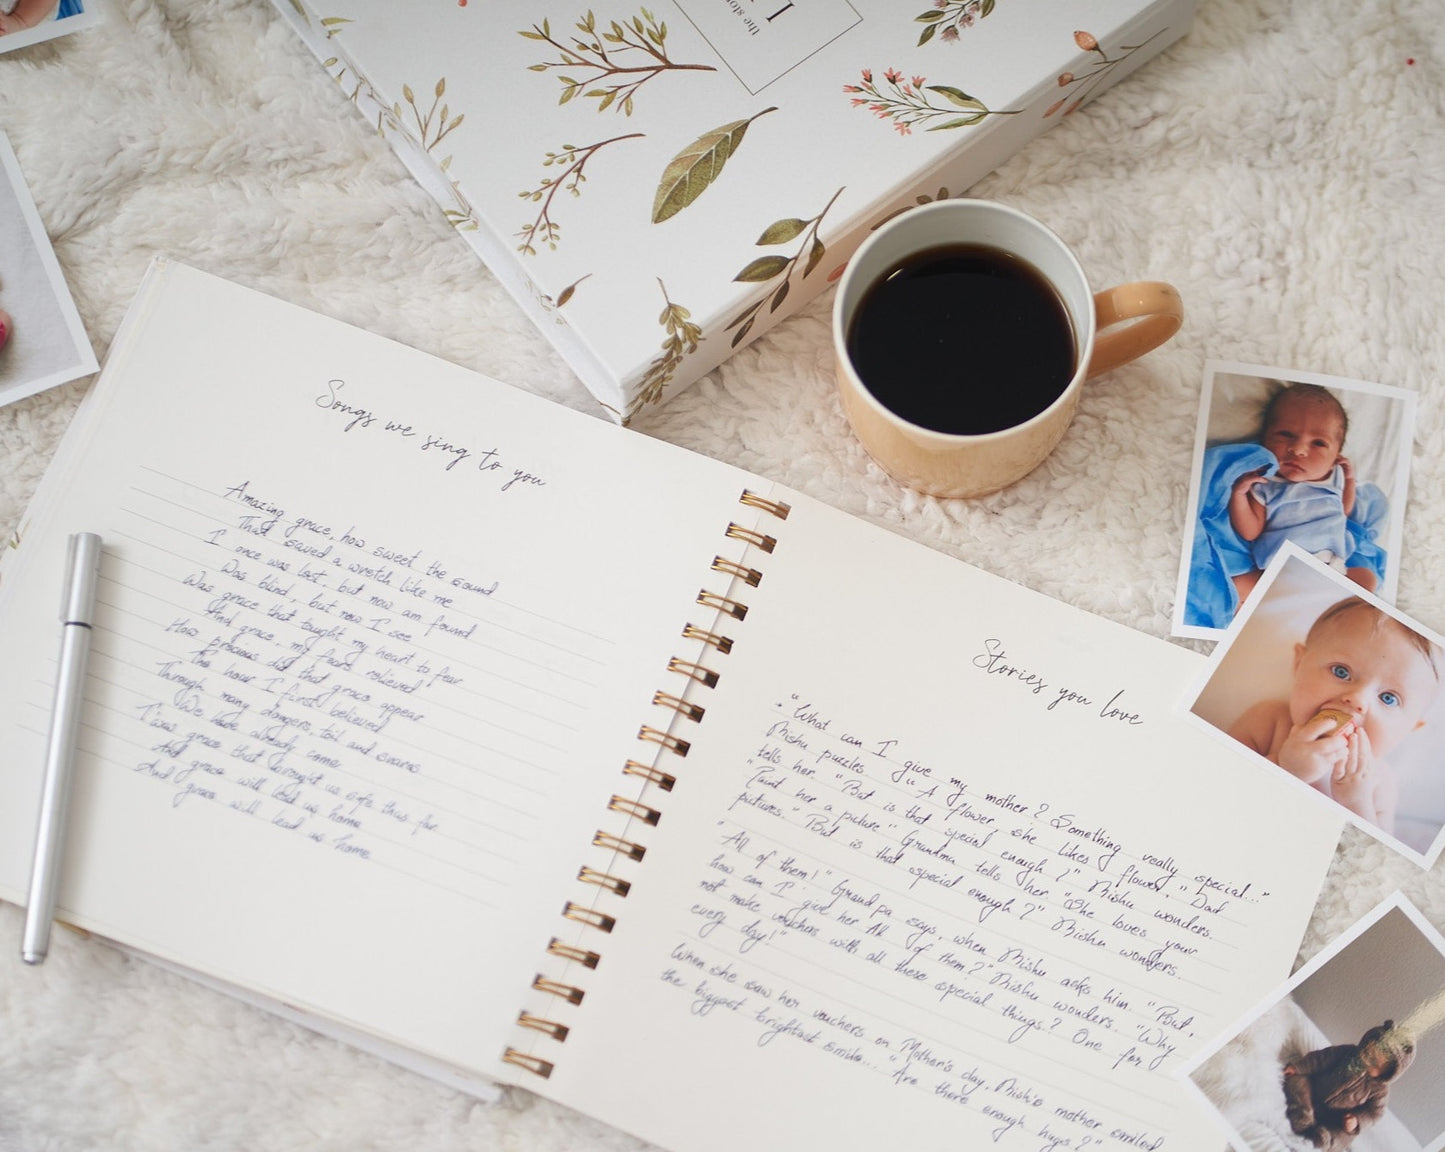 the
I
Songs we sing to you
Amazing grace, how sweet the sound
That saved a wretch like me
I once was lost, but now am found
Was blind, but now I see
Was grace that taught my heart to fear
And grace, my fears relieved
How precious did that grace appear
The hour I first believed
Through many dangers, toil and snares
We have already come
T'was grace that brought us safe thus far
And grace will lead us home
And grace will lead us home
Stories you love
"What can I give my mother? Something really special..."
Mishu puzzles. "A flower, she likes flower," Dad
tells her. "But is that special enough?" Mishu wonders.
"Paint her a picture" Grandma tells her. "She loves your
pictures." "But is that special enough?" Mishu wonders.
"All of them!" Grandpa says, when Mishu asks him. "But,
how can I give her All of them?" Mishu wonders. "Why
not make vouchers with all these special things? One for
every day!"
When she saw her vouchers on Mother's day, Mishu's mother smiled
the biggest brightest smile... "Are there enough hugs?"